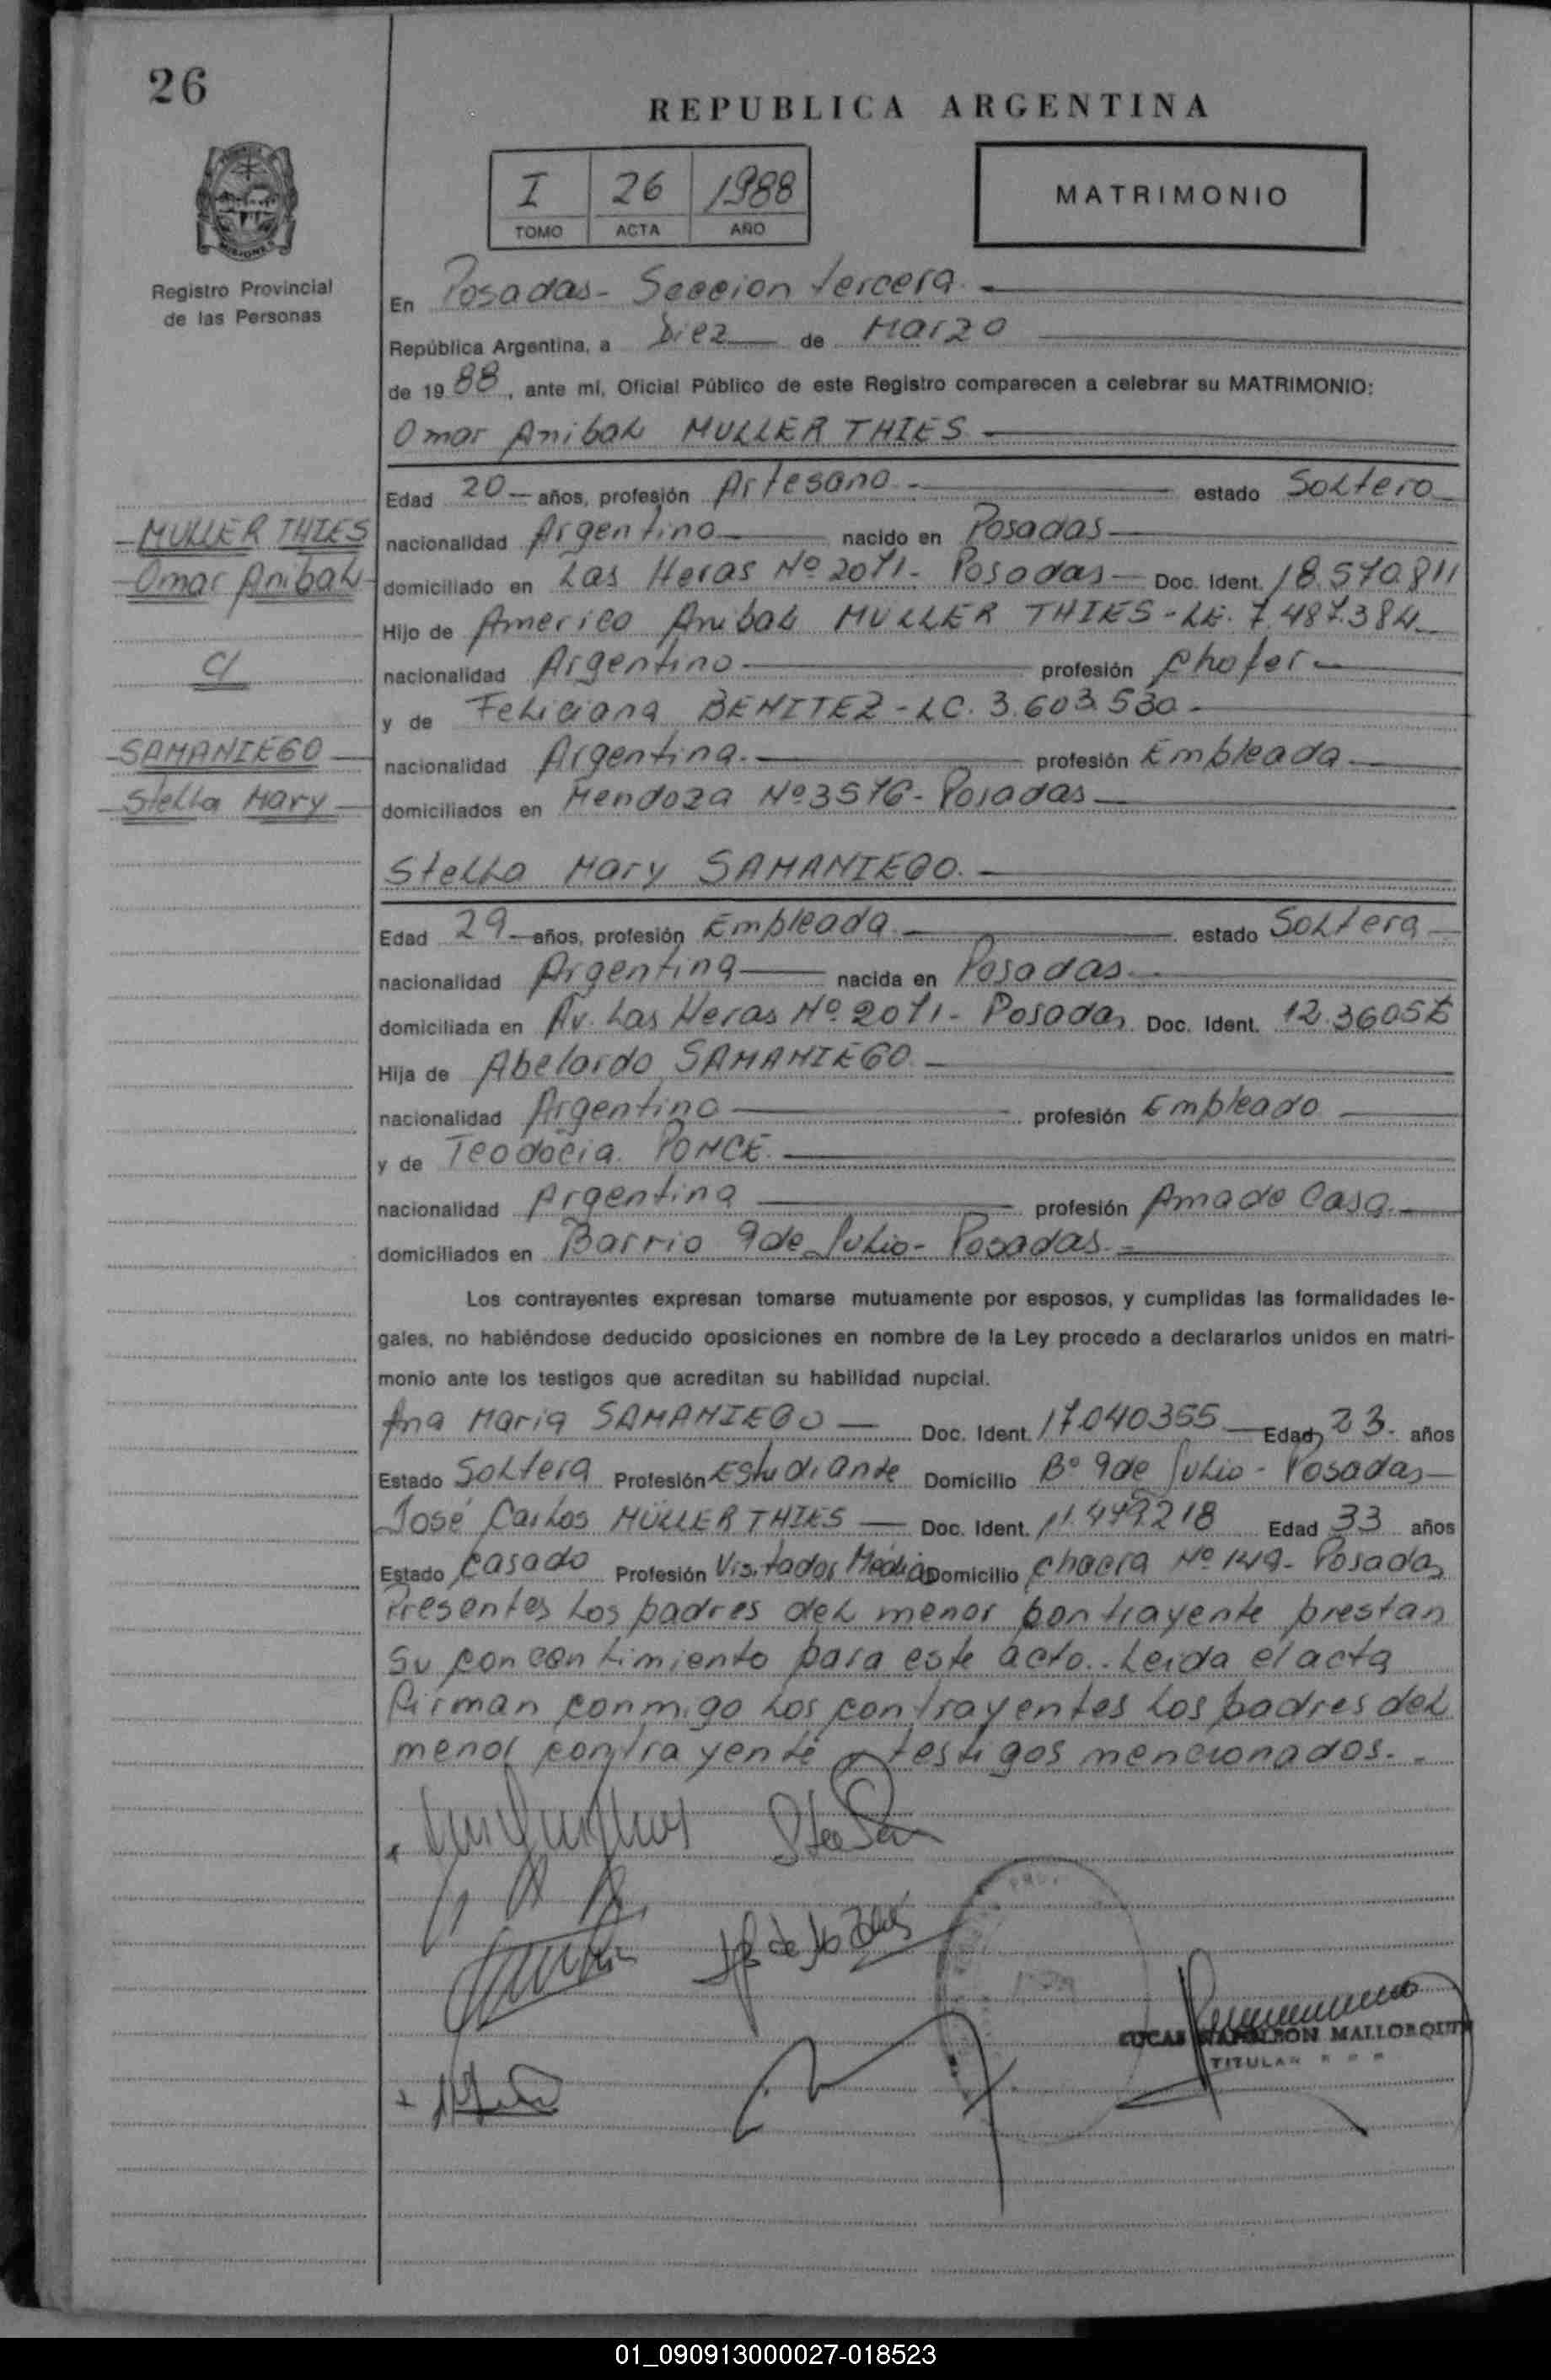 26
REPUBLICA ARGENTINA
I 26 1988
TOMO ACTA AÑO
MATRIMONIO
Registro Provincial
de las Personas
En Posadas - Seccion tercera
República Argentina, a Diez de Marzo
de 1988, ante mí, Oficial Público de este Registro comparecen a celebrar su MATRIMONIO:
Omar Anibal MULLER THIES
Edad 20 años, profesión Artesano estado Soltero
MULLER THIES
nacionalidad Argentino nacido en Posadas
Omar Anibal
domiciliado en Las Heras Nº 2071 - Posadas Doc. Ident. 18.570.811
Hijo de Americo Anibal MULLER THIES - LE. 7.487.384
C/
nacionalidad Argentino profesión Chofer
y de Feliciana BENITEZ - LC. 3.603.530
SAMANIEGO
nacionalidad Argentina profesión Empleada
Stella Mary
domiciliados en Mendoza Nº 3576 - Posadas
Stella Mary SAMANIEGO
Edad 29 años, profesión Empleada estado Soltera
nacionalidad Argentina nacida en Posadas
domiciliada en Av. Las Heras Nº 2071 - Posadas Doc. Ident.
Hija de Abelardo SAMANIEGO
nacionalidad Argentino profesión Empleado
y de Teodocia PONCE
nacionalidad Argentina profesión Ama de Casa
domiciliados en Barrio 9 de Julio - Posadas
Los contrayentes expresan tomarse mutuamente por esposos, y cumplidas las formalidades le-
gales, no habiéndose deducido oposiciones en nombre de la Ley procedo a declararlos unidos en matri-
monio ante los testigos que acreditan su habilidad nupcial.
Ana Maria SAMANIEGO Doc. Ident. 17040355 Edad 23 años
Estado Soltera Profesión Estudiante Domicilio Bº 9 de Julio - Posadas
José Carlos MÜLLER THIES Doc. Ident. Edad 33 años
Estado Casado Profesión Visitador Domicilio Chacra Nº 149 - Posadas
Presentes los padres del menor contrayente prestan
su concentimiento para este acto. Leida el acta
firman conmigo los contrayentes los padres del
menor contrayente y testigos mencionados.
LUCAS NAPOLEON MALLORQUIN
TITULAR
01_090913000027-018523